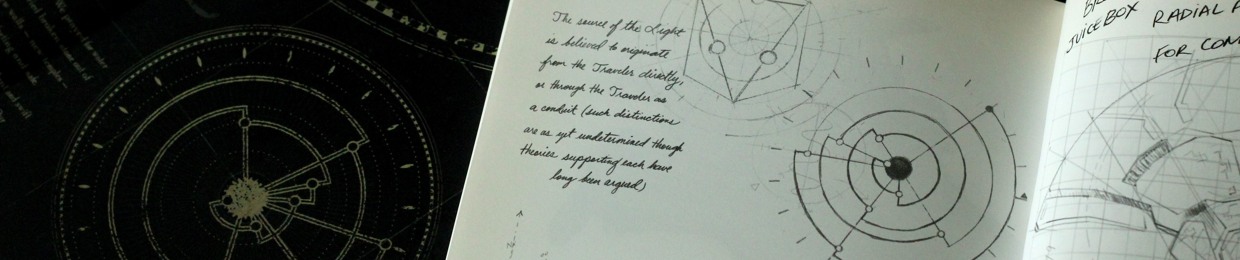 The source of the Light
is believed to originate
from the Traveler directly,
or through the Traveler as
a conduit (such distinctions
are as yet undetermined though
theories supporting each have
long been argued)
JUICEBOX
RADIAL
FOR